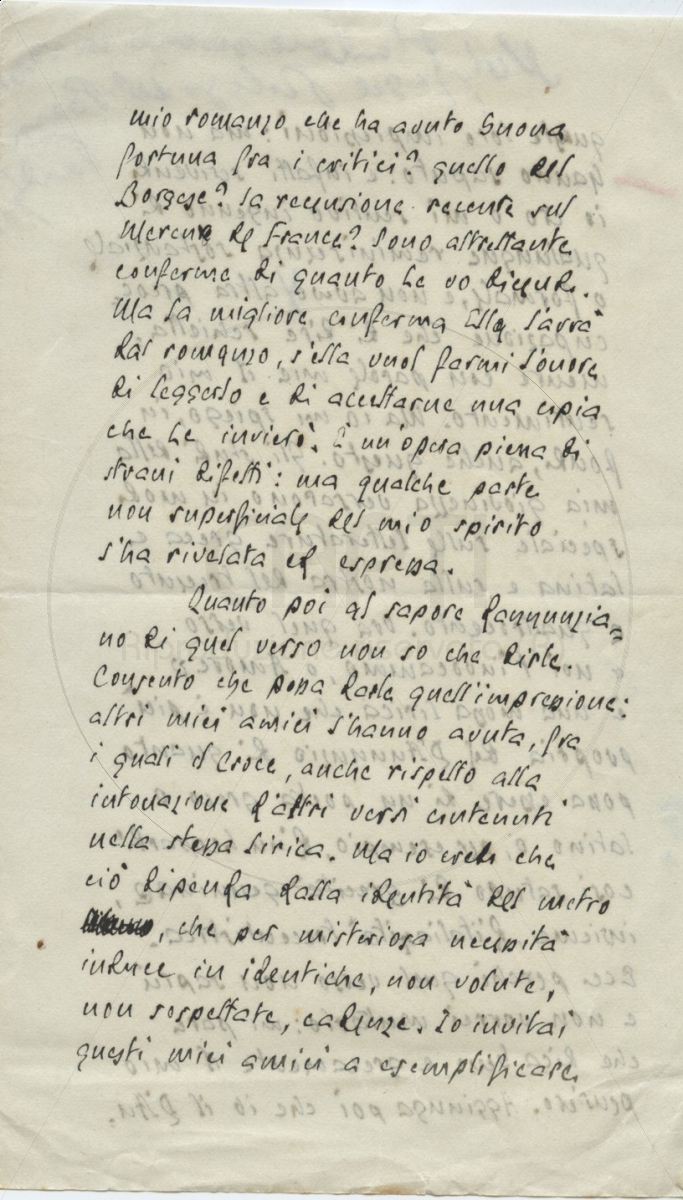 mio romanzo che ha avuto buona
fortuna fra i critici? quello del
Borgese? la recensione recente sul
Mercure de France? Sono altrettante
conferme di quanto Le vo dicendo.
Ma la migliore conferma Ella l'avrà
dal romanzo, s'ella vuol farmi l'onore
di leggerlo e di accettarne una copia
che Le invierò. È un'opera piena di
strani difetti: ma qualche parte
non superficiale del mio spirito
s'ha rivelata ed espressa.
Quanto poi al sapore dannunzia=
no di quel verso non so che dirle.
Consento che possa darle quell'impressione:
altri miei amici l'hanno avuta, fra
i quali il Croce, anche rispetto alla
intonazione d'altri versi contenuti
nella stessa lirica. Ma io credo che
ciò dipenda dalla identità del metro
, che per misteriosa necessità
induce in identiche, non volute,
non sospettate, cadenze. Io invitai
questi miei amici a esemplificare